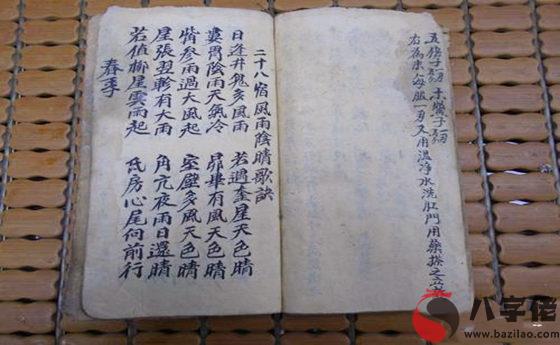 五倍子 木鱉子
右為末每服一 又用溫淨水洗肛門用藥搽之
二十八宿風雨陰晴歌訣
日逢井鬼多風雨 若遇奎星天色晴
婁胃陰雨天氣冷 昴畢有風天色晴
觜參雨過大風起 室壁多風天色晴
星張翌軫有大雨 角亢夜雨日還晴
若值柳星雲雨起 氐房心尾向前行
春季
八字佬
www.bazilao.com